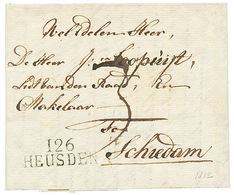 Weledelen Heer,
De Heer
Lid van den Raad, En
Makelaar
te
126
HEUSDEN
Schiedam
1812